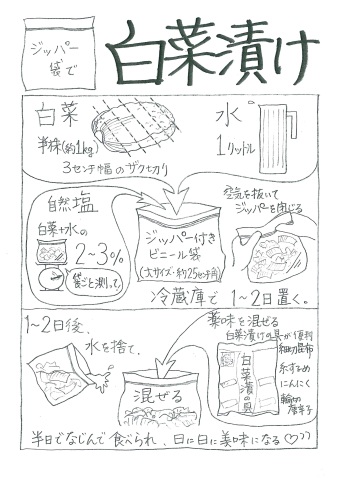 ジッパー
袋で
白菜漬け
白菜
半株(約1kg)
3センチ幅のザク切り
水
1リットル
自然塩
白菜+水の
2~3%
袋ごと測って
ジッパー付き
ビニール袋
(大サイズ・約25センチ角)
空気を抜いて
ジッパーを閉じる
冷蔵庫で1~2日置く。
1~2日後、
水を捨て、
混ぜる
薬味を混ぜる
白菜漬けの具が便利
白菜漬の具
細切昆布
糸するめ
にんにく
輪切
唐辛子
半日でなじんで食べられ、日に日に美味になる♡♪